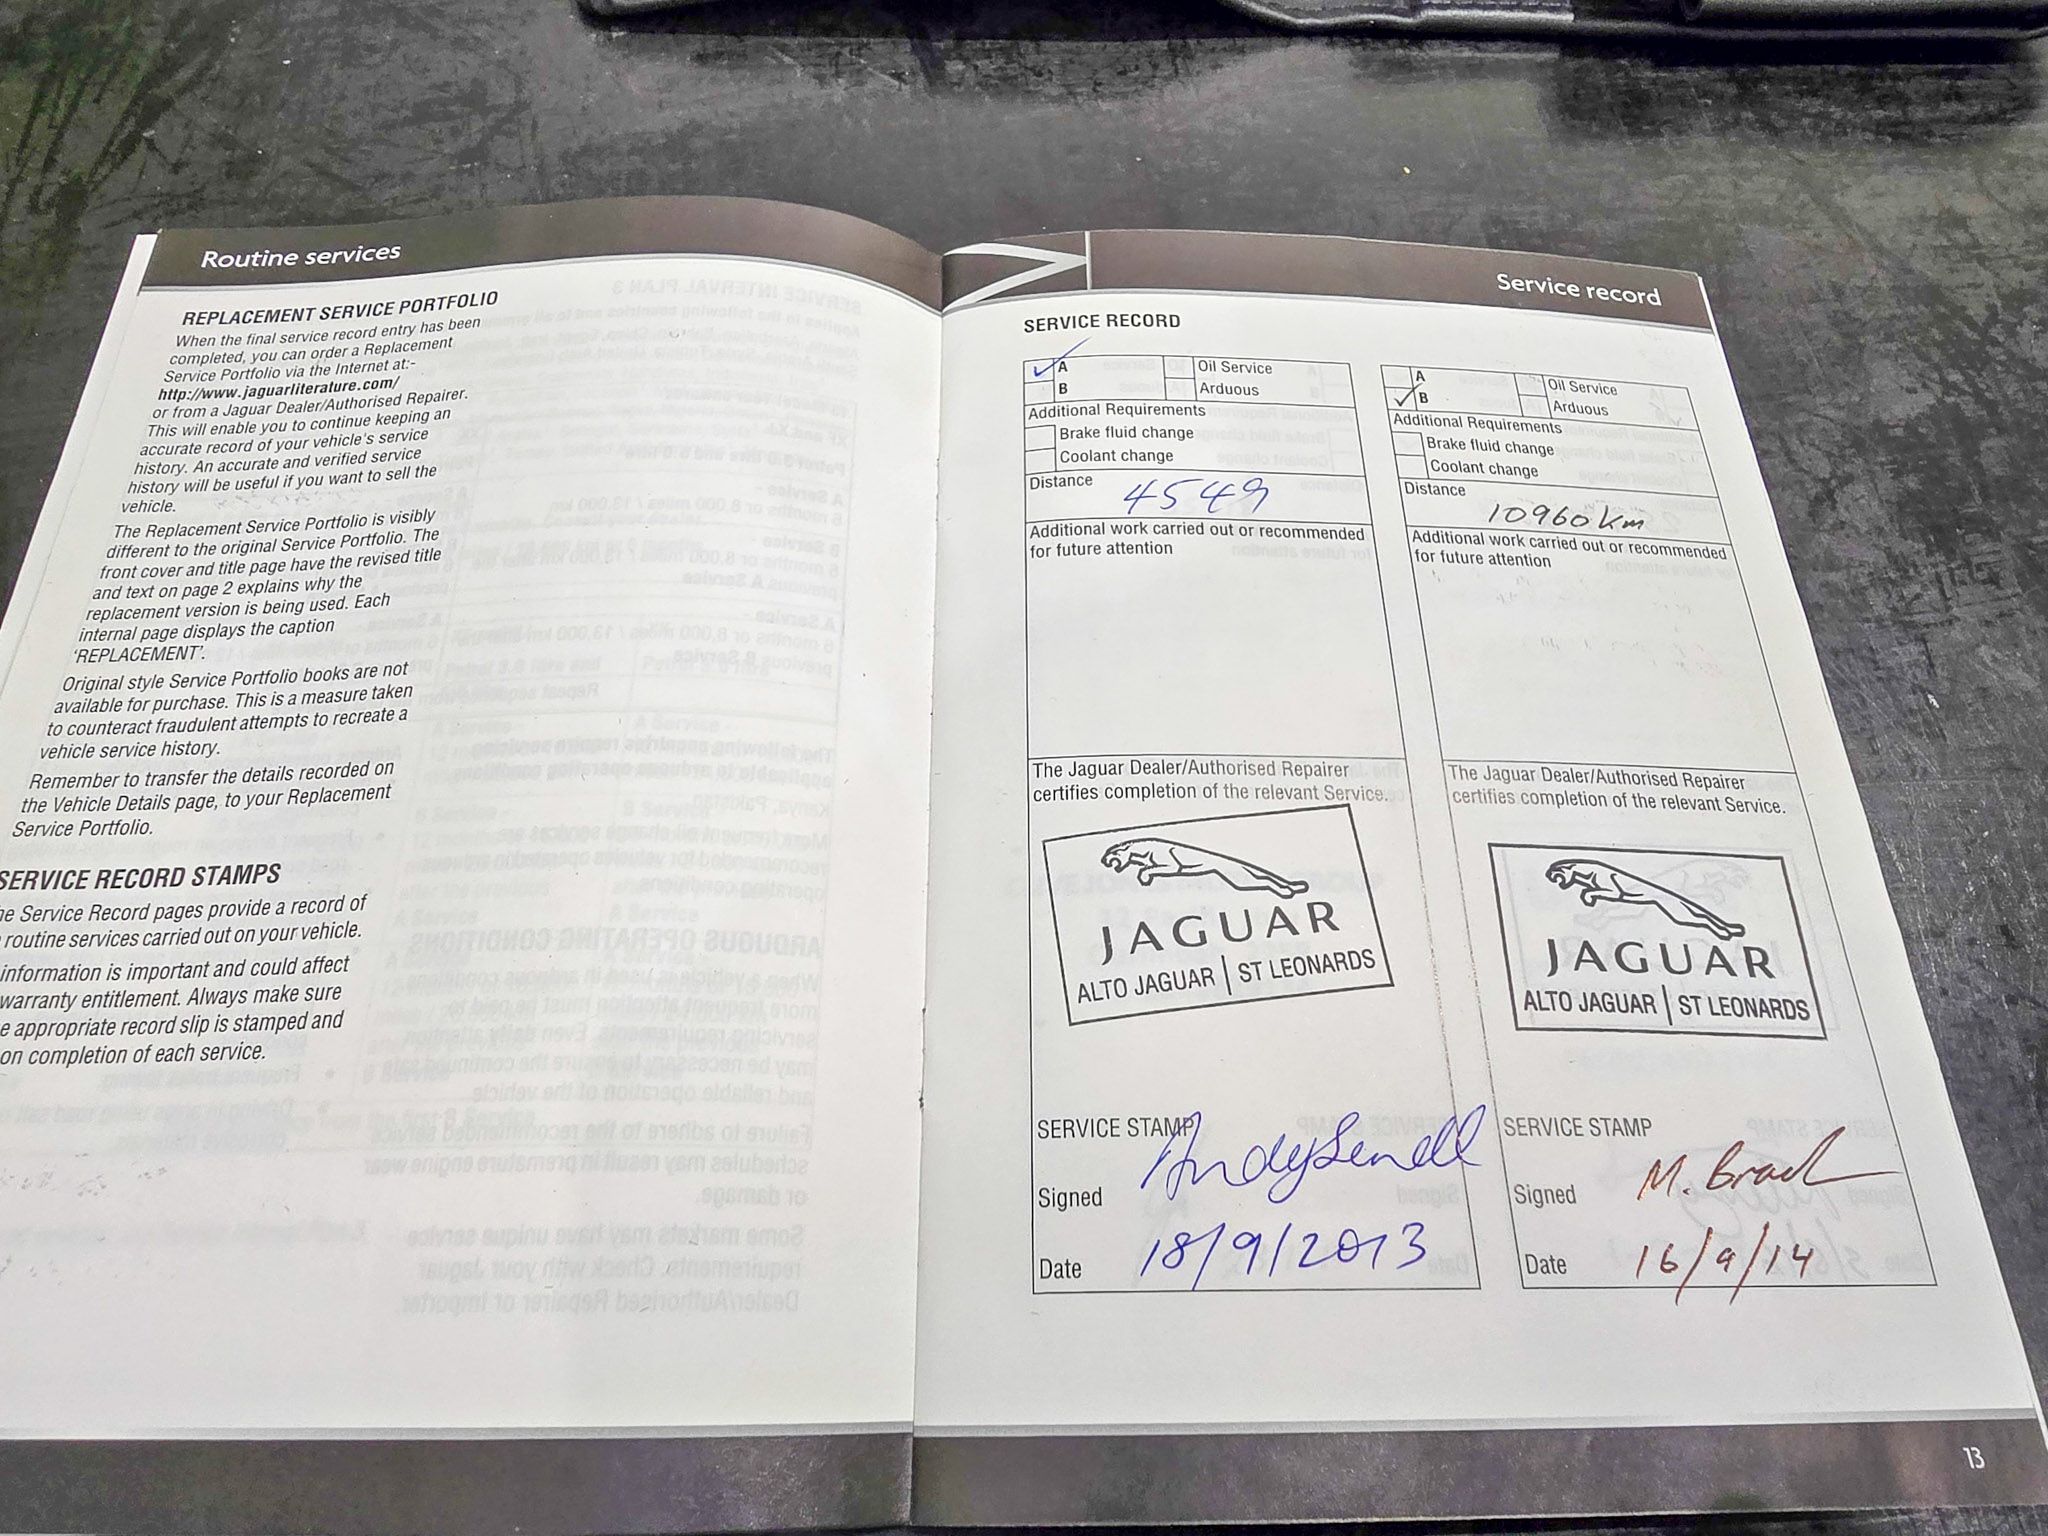 Routine services
REPLACEMENT SERVICE PORTFOLIO
When the final service record entry has been
completed, you can order a Replacement
Service Portfolio via the Internet at:-
http://www.jaguarliterature.com/
or from a Jaguar Dealer/Authorised Repairer.
This will enable you to continue keeping an
accurate record of your vehicle's service
history. An accurate and verified service
history will be useful if you want to sell the
vehicle.
The Replacement Service Portfolio is visibly
different to the original Service Portfolio. The
front cover and title page have the revised title
and text on page 2 explains why the
replacement version is being used. Each
internal page displays the caption
'REPLACEMENT'.
Original style Service Portfolio books are not
available for purchase. This is a measure taken
to counteract fraudulent attempts to recreate a
vehicle service history.
Remember to transfer the details recorded on
the Vehicle Details page, to your Replacement
Service Portfolio.
SERVICE RECORD STAMPS
Service Record pages provide a record of
routine services carried out on your vehicle.
information is important and could affect
warranty entitlement. Always make sure
appropriate record slip is stamped and
on completion of each service.
Service record
SERVICE RECORD
A
Oil Service
B
Arduous
Additional Requirements
Brake fluid change
Coolant change
Distance
4549
Additional work carried out or recommended
for future attention
The Jaguar Dealer/Authorised Repairer
certifies completion of the relevant Service.
JAGUAR
ALTO JAGUAR | ST LEONARDS
SERVICE STAMP
Signed
Date 18/9/2013
A
Oil Service
B
Arduous
Additional Requirements
Brake fluid change
Coolant change
Distance
10960 km
Additional work carried out or recommended
for future attention
The Jaguar Dealer/Authorised Repairer
certifies completion of the relevant Service.
JAGUAR
ALTO JAGUAR | ST LEONARDS
SERVICE STAMP
Signed M.
Date 16/9/14
13